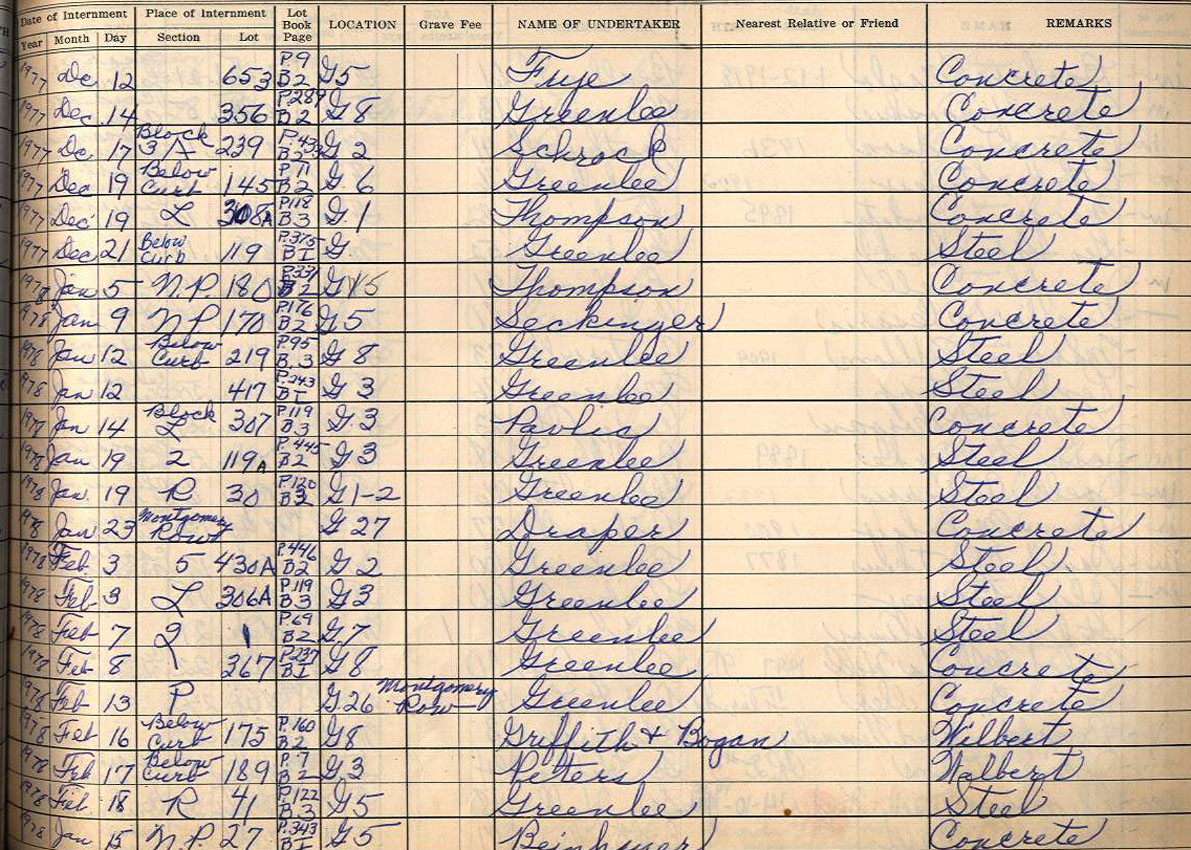 Date of Internment Place of Internment Lot Book Page LOCATION Grave Fee NAME OF UNDERTAKER Nearest Relative or Friend REMARKS
Year Month Day Section Lot
1977 Dec 12 653 P.9 B2 G5 Frye Concrete
1977 Dec 14 356 P289 B2 G8 Greenlee Concrete
1977 Dec 17 Block 3 A 239 B2 G 2 Schrock Concrete
1977 Dec 19 Below Curb 145 P11 B2 G. 6 Greenlee Concrete
1977 Dec 19 L 308A P118 B3 G. 1 Thompson Concrete
1977 Dec 21 Below Curb 119 P.375 B I G. Greenlee Steel
1978 Jan 5 N.P. 180 B2 Thompson Concrete
1978 Jan 9 N P 170 P176 B2 G 5 Seckinger Concrete
1978 Jan 12 Below Curb 219 P95 B.3 G 8 Greenlee Steel
1978 Jan 12 417 P.243 B I G 3 Greenlee Steel
Jan 14 Block L 307 P119 B3 G.3 Pavlic Concrete
1978 Jan 19 2 119A P.445 B2 G3 Greenlee Steel
1978 Jan. 19 R 30 P.120 B3 G1-2 Greenlee Steel
1978 Jan 23 Montgomery Row G 27 Draper Concrete
1978 Feb 3 5 430A P.446 B2 G 2 Greenlee Steel
1978 Feb 3 L 306A P.119 B3 G3 Greenlee Steel
1978 Feb 7 2 1 P69 B2 G.7 Greenlee Steel
1978 Feb 8 1 267 P237 B I G8 Greenlee Concrete
1978 Feb 13 P G26 Montgomery Row Greenlee Concrete
1978 Feb 16 Below Curb 175 P.160 B2 G8 Griffith + Bogan Wilbert
1978 Feb 17 Below Curb 189 P.7 B2 G3 Peters Walbert
1978 Feb 18 R 41 P122 B.3 G5 Greenlee Steel
1978 Jan 15 N.P. 27 P.343 B I G5 Concrete